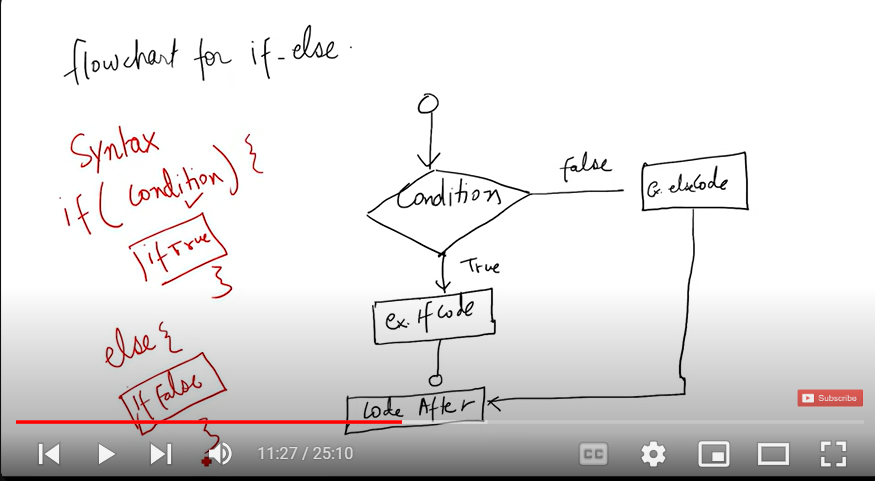 flowchart for if-else.
Syntax
if (condition) {
if True
}
else {
if false
}
Condition
false
True
ex. if code
Ex. else Code
Code After
Subscribe
11:27 / 25:10
CC